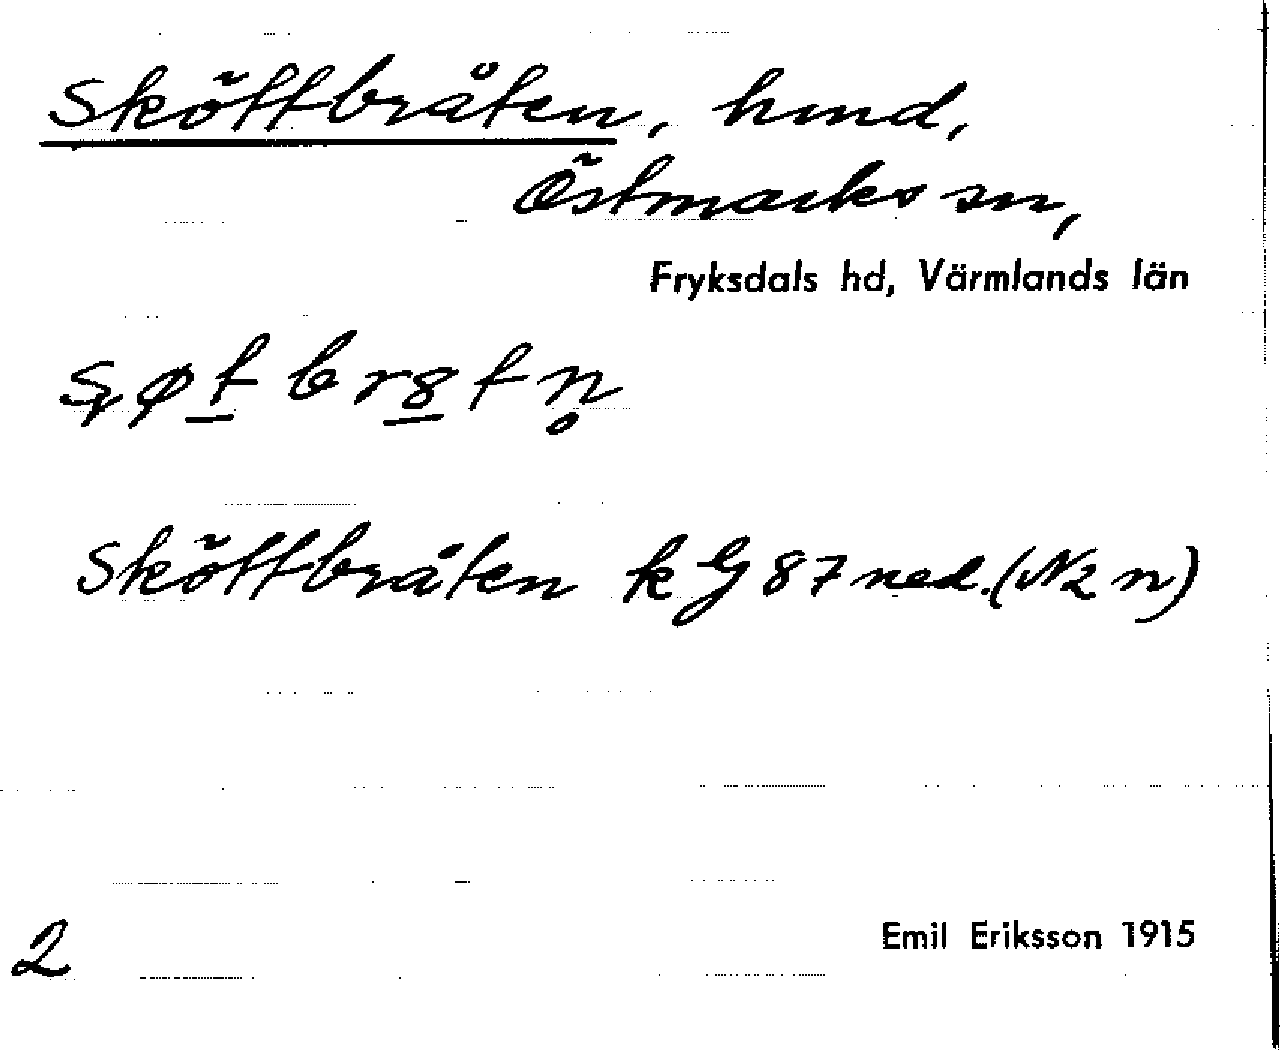 Sköttbråten, hmd,
Östmarks sn,
Fryksdals hd, Värmlands län
Sköttbråten k G 87 ned. (N2 n)
2
Emil Eriksson 1915